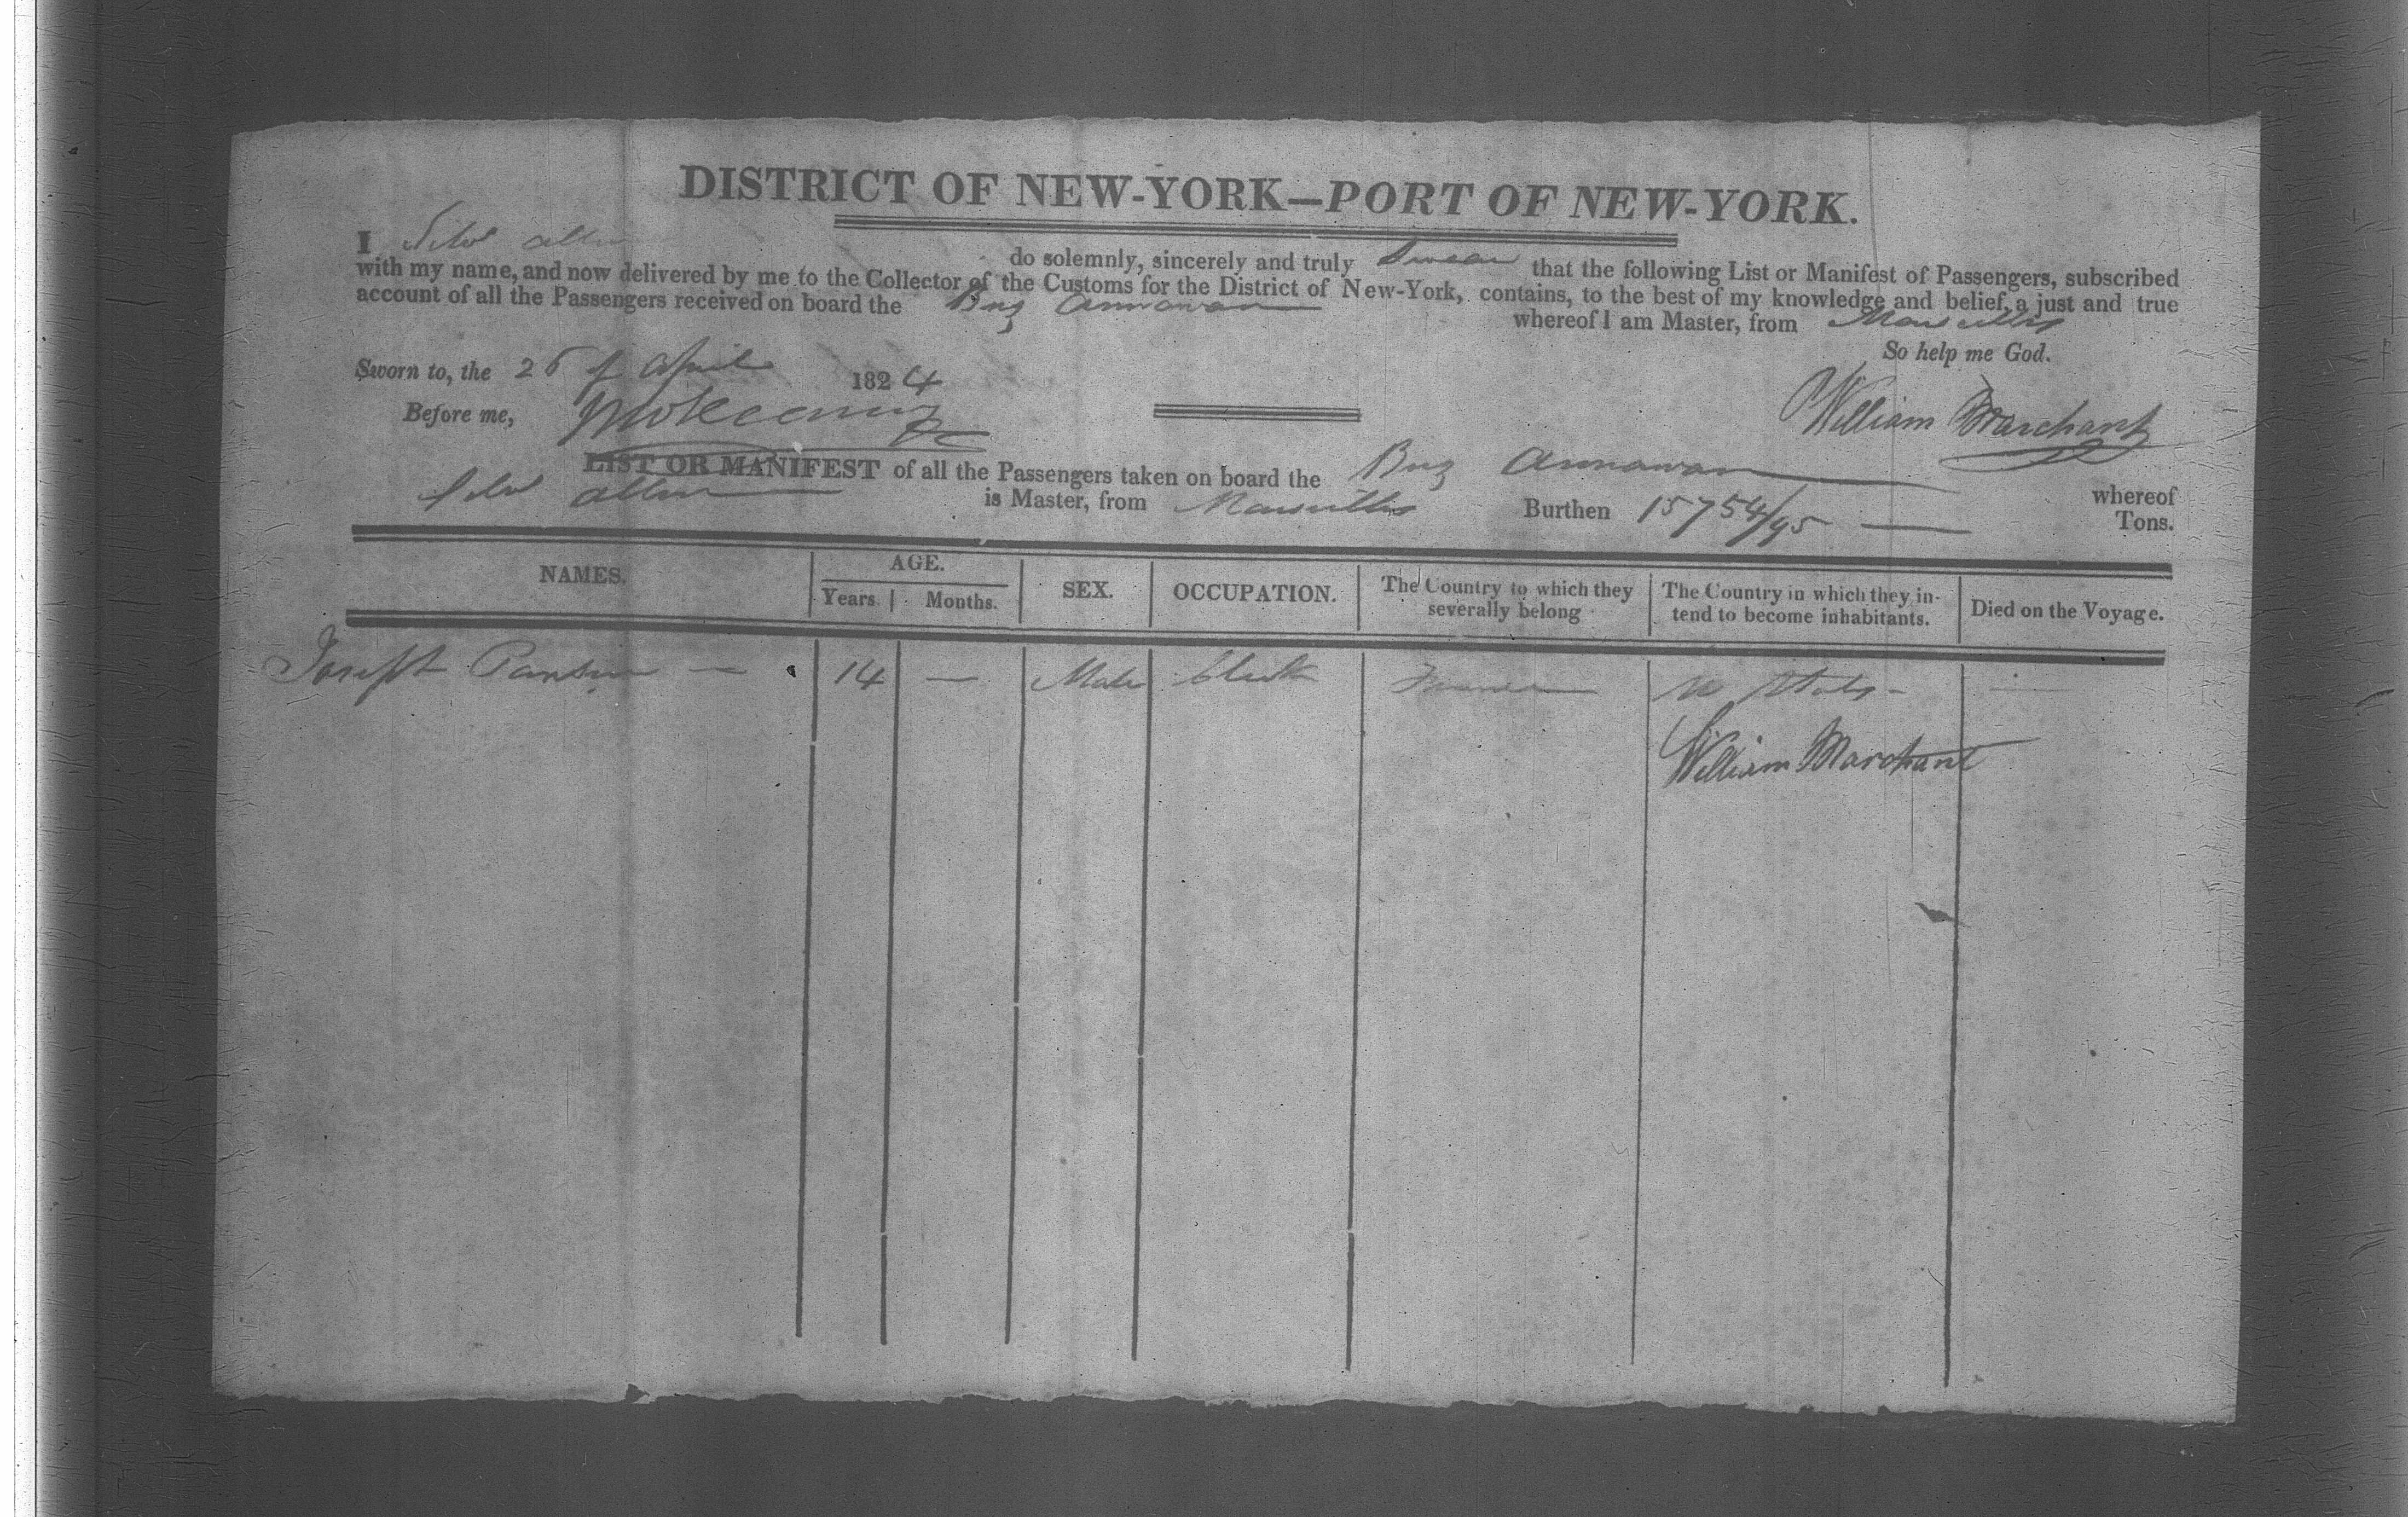 DISTRICT OF NEW-YORK—PORT OF NEW-YORK.
I do solemnly, sincerely and truly Swear that the following List or Manifest of Passengers, subscribed
with my name, and now delivered by me to the Collector of the Customs for the District of New-York, contains, to the best of my knowledge and belief, a just and true
account of all the Passengers received on board the Brig Annawan whereof I am Master, from Marseilles
So help me God.
Sworn to, the 26 of April 1824
Before me,
William Marchant
LIST OR MANIFEST of all the Passengers taken on board the Brig Annawan whereof
is Master, from Marseilles Burthen 157 54/95 Tons.
NAMES. AGE. Years. Months. SEX. OCCUPATION. The Country to which they severally belong The Country in which they intend to become inhabitants. Died on the Voyage.
Joseph 14 — Male Clerk France U States —
William Marchant